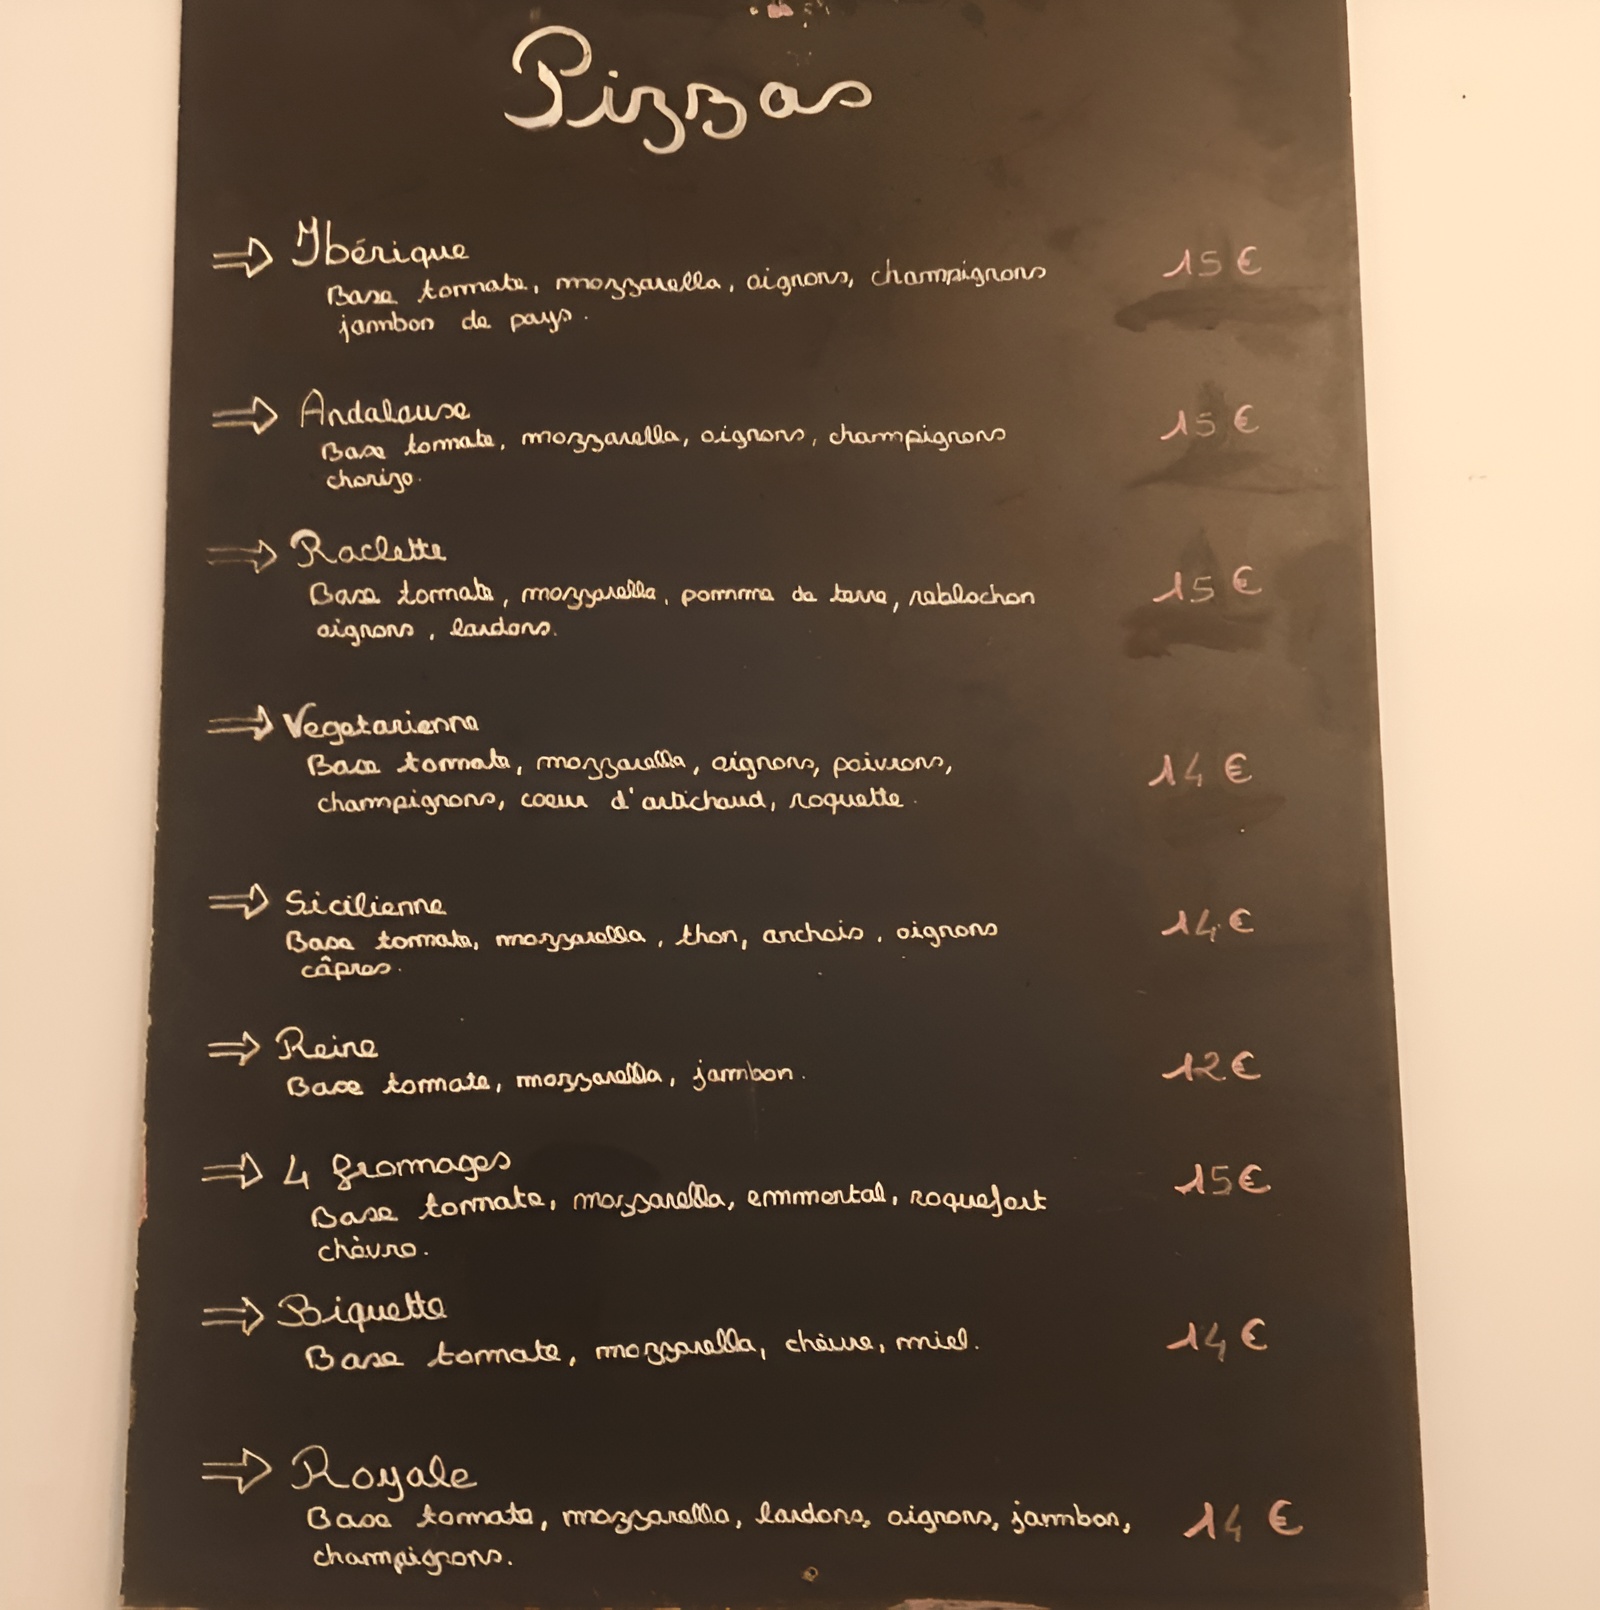 Pizzas
⇒ Ibérique
Base tomate, mozzarella, oignons, champignons 15 €
jambon de pays.
⇒ Andalouse
Base tomate, mozzarella, oignons, champignons 15 €
chorizo.
⇒ Raclette
Base tomate, mozzarella, pomme de terre, reblochon 15 €
oignons, lardons.
⇒ Vegetarienne
Base tomate, mozzarella, oignons, poivrons, 14 €
champignons, coeur d'artichaud, roquette.
⇒ Sicilienne
Base tomate, mozzarella, thon, anchois, oignons 14 €
câpres.
⇒ Reine
Base tomate, mozzarella, jambon. 12 €
⇒ 4 fromages
Base tomate, mozzarella, emmental, roquefort 15 €
chèvre.
⇒ Biquette
Base tomate, mozzarella, chèvre, miel. 14 €
⇒ Royale
Base tomate, mozzarella, lardons, oignons, jambon, 14 €
champignons.